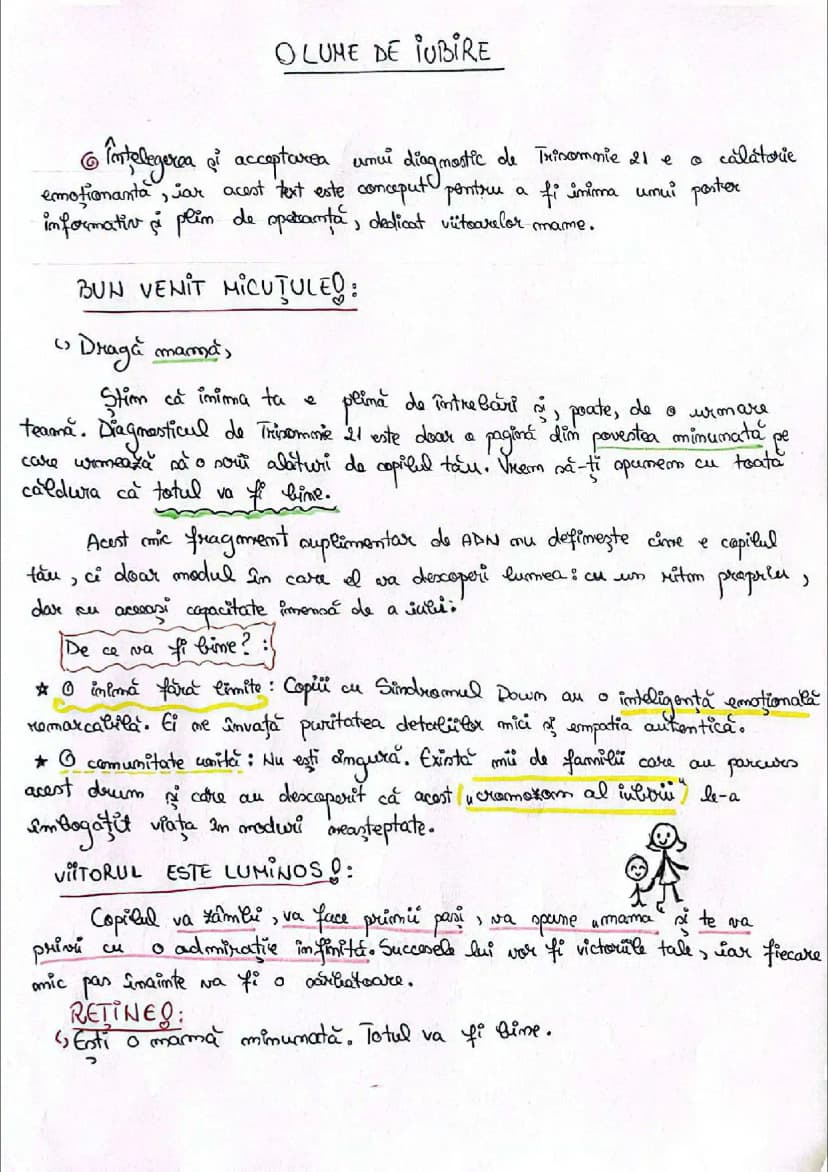 O LUME DE IUBIRE
Înțelegerea și acceptarea unui diagnostic de Trisomie 21 e o călătorie
emoționantă, iar acest text este conceput pentru a fi inima unui poster
informativ și plin de speranță, dedicat viitoarelor mame.
BUN VENIT MICUȚULE!:
Dragă mamă,
Știm că inima ta e plină de întrebări și, poate, de o urmare
teamă. Diagnosticul de Trisomie 21 este doar o pagină din povestea minunată pe
care urmează să o scrii alături de copilul tău. Vrem să-ți spunem cu toată
căldura că totul va fi bine.
Acest mic fragment suplimentar de ADN nu definește cine e copilul
tău, ci doar modul în care el va descoperi lumea: cu un ritm propriu,
dar cu aceeași capacitate imensă de a iubi.
De ce va fi bine? :
★ O inimă fără limite: Copiii cu Sindromul Down au o inteligență emoțională
remarcabilă. Ei ne învață puritatea detaliilor mici și empatia autentică.
★ O comunitate unită: Nu ești singură. Există mii de familii care au parcurs
acest drum și care au descoperit că acest „cromozom al iubirii" le-a
îmbogățit viața în moduri neașteptate.
VIITORUL ESTE LUMINOS!:
Copilul va zâmbi, va face primii pași, va spune „mama" și te va
privi cu o admirație infinită. Succesele lui vor fi victoriile tale, iar fiecare
mic pas înainte va fi o sărbătoare.
REȚINE!:
Ești o mamă minunată. Totul va fi bine.